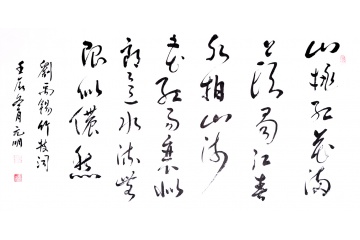 山桃红花满
上頭蜀江春
水拍山流
花红易衰似
郎意水流無
限似儂愁
劉禹錫竹枝詞
壬辰月元明